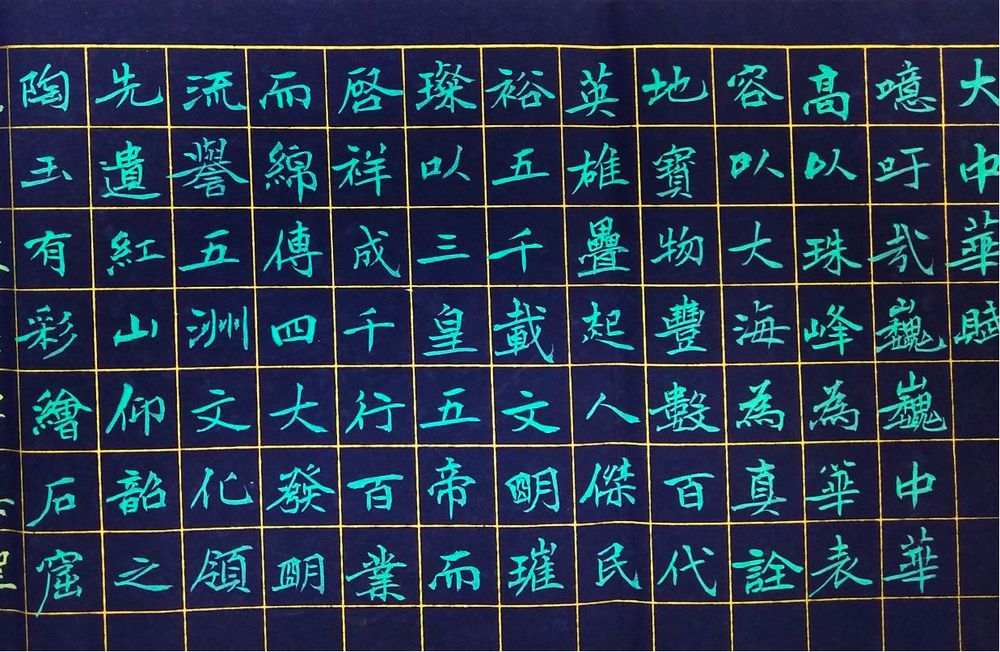 大中華賦
噫吁哉巍巍中華
高以珠峰為華表
容以大海為真詮
地寶物豐數百代
英雄疊起人傑民
裕五千載文明璀
璨以三皇五帝而
啓祥成千行百業
而綿傳四大發明
流譽五洲文化領
先遺紅山仰韶之
陶玉有彩繪石窟